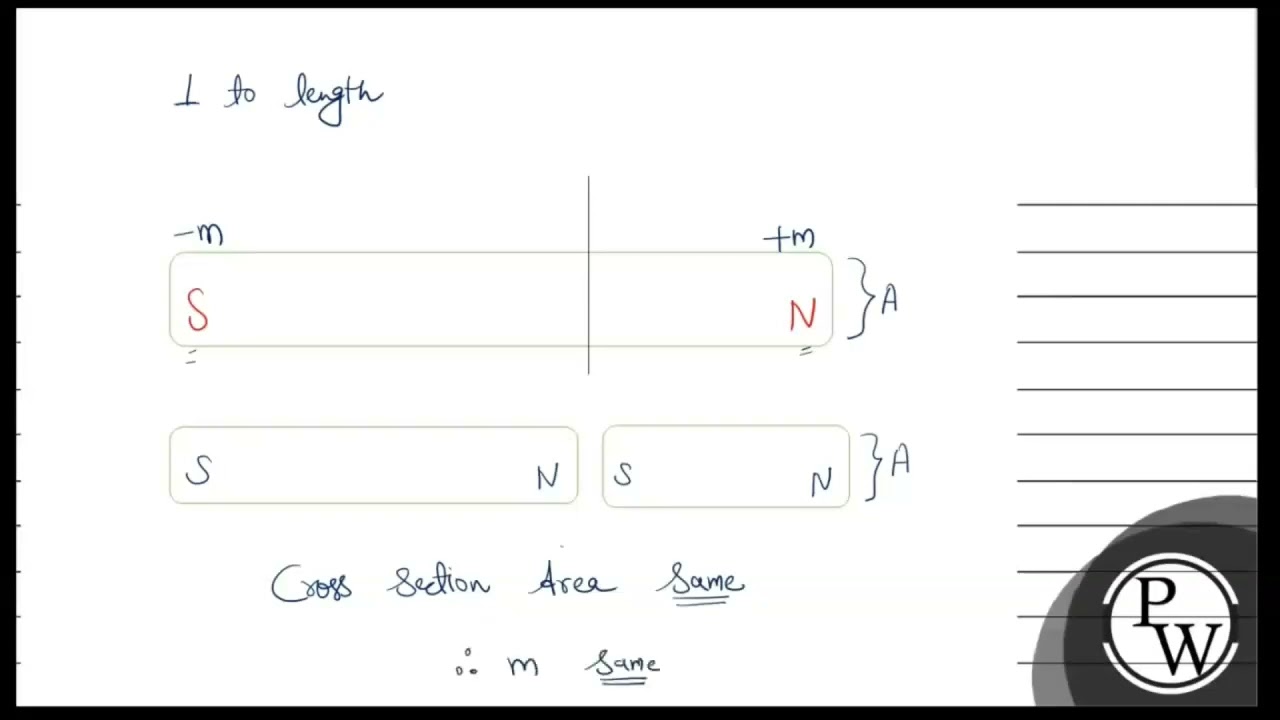 ⊥ to length
-m +m
S N } A
S N S N } A
Cross Section Area Same
∴ m Same
PW